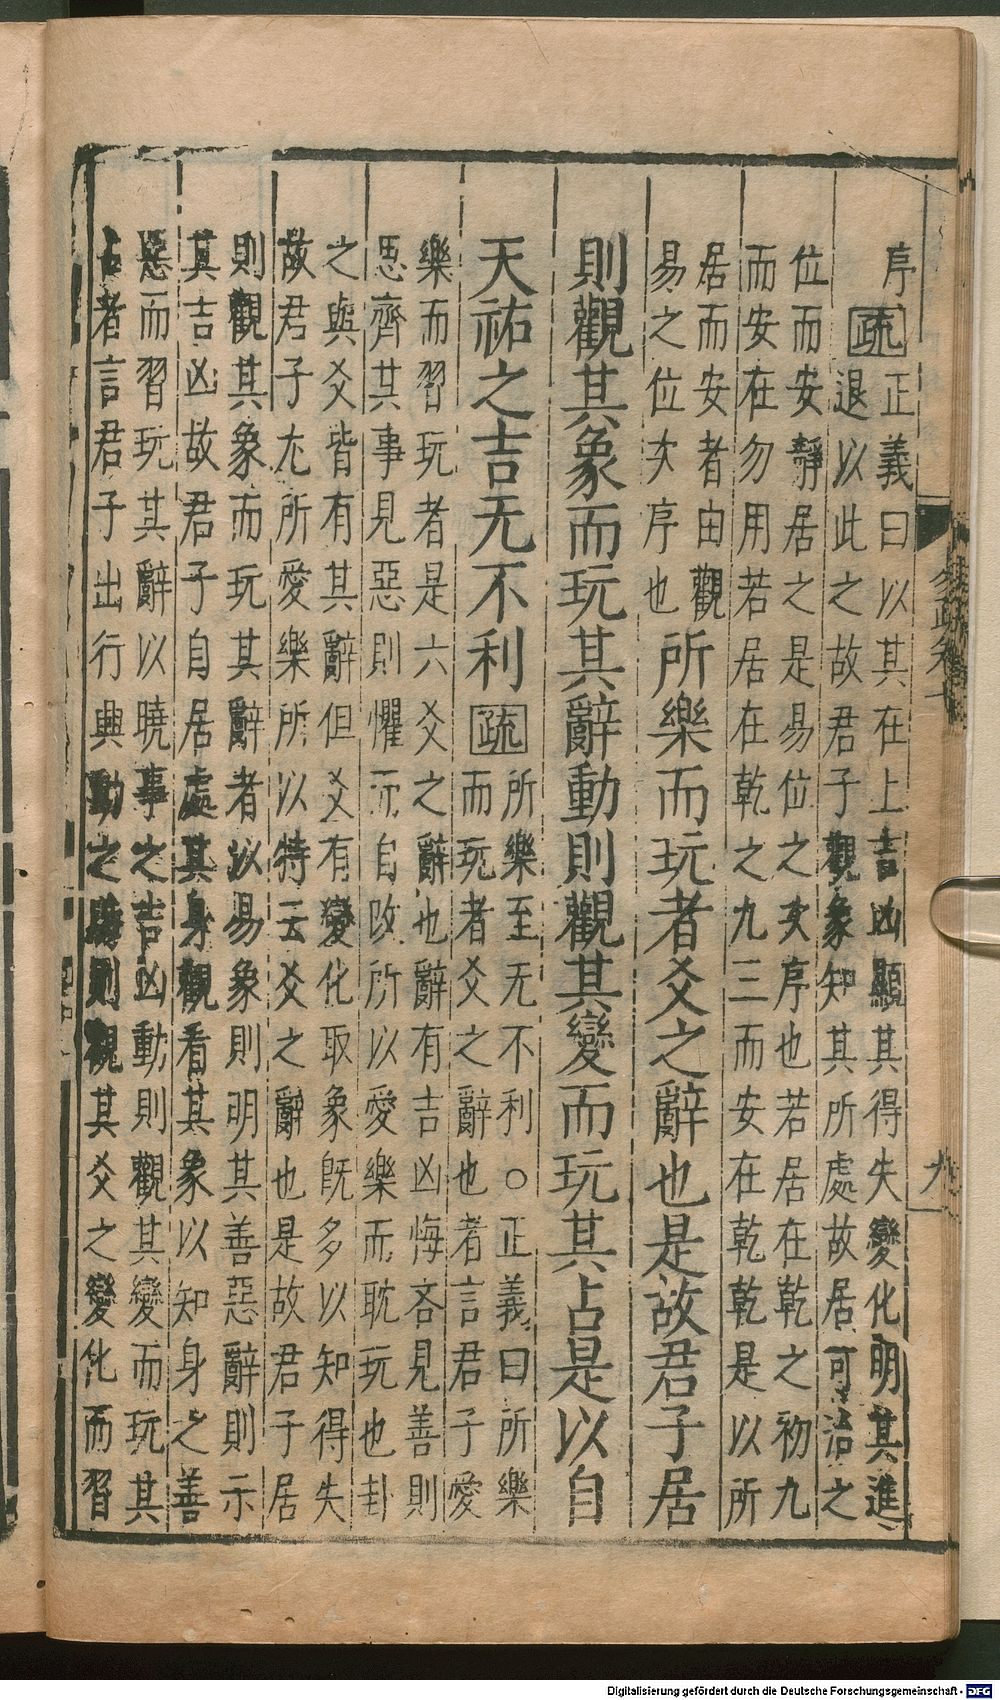 序
疏
正義曰以其在上吉凶顯其得失變化明其進
退以此之故君子觀象知其所處故居可治之
位而安靜居之是易位之次序也若居在乾之初九
而安在勿用若居在乾之九三而安在乾乾是以所
居而安者由觀
易之位次序也
所樂而玩者爻之辭也是故君子居
則觀其象而玩其辭動則觀其變而玩其占是以自
天祐之吉无不利疏
所樂至无不利○正義曰所樂
而玩者爻之辭也者言君子愛
樂而習玩者是六爻之辭也辭有吉凶悔吝見善則
思齊其事見惡則懼而自改所以愛樂而耽玩也卦
之與爻皆有其辭但爻有變化取象既多以知得失
故君子尤所愛樂所以特云爻之辭也是故君子居
則觀其象而玩其辭者以易象則明其善惡辭則示
其吉凶故君子自居處其身觀看其象以知身之善
惡而習玩其辭以曉事之吉凶動則觀其變而玩其
占者言君子出行興動之時則觀其爻之變化而習
Digitalisierung gefördert durch die Deutsche Forschungsgemeinschaft - DFG